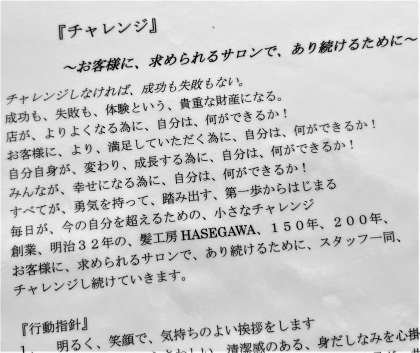 『チャレンジ』
～お客様に、求められるサロンで、あり続けるために～
チャレンジしなければ、成功も失敗もない。
成功も、失敗も、体験という、貴重な財産になる。
店が、よりよくなる為に、自分は、何ができるか！
お客様に、より、満足していただく為に、自分は、何ができるか！
自分自身が、変わり、成長する為に、自分は、何ができるか！
みんなが、幸せになる為に、自分は、何ができるか！
すべてが、勇気を持って、踏み出す、第一歩からはじまる
毎日が、今の自分を超えるための、小さなチャレンジ
創業、明治３２年の、髪工房 HASEGAWA、１５０年、２００年、
お客様に、求められるサロンで、あり続けるために、スタッフ一同、
チャレンジし続けていきます。
『行動指針』
1、 明るく、笑顔で、気持ちのよい挨拶をします
清潔感のある、身だしなみを心掛